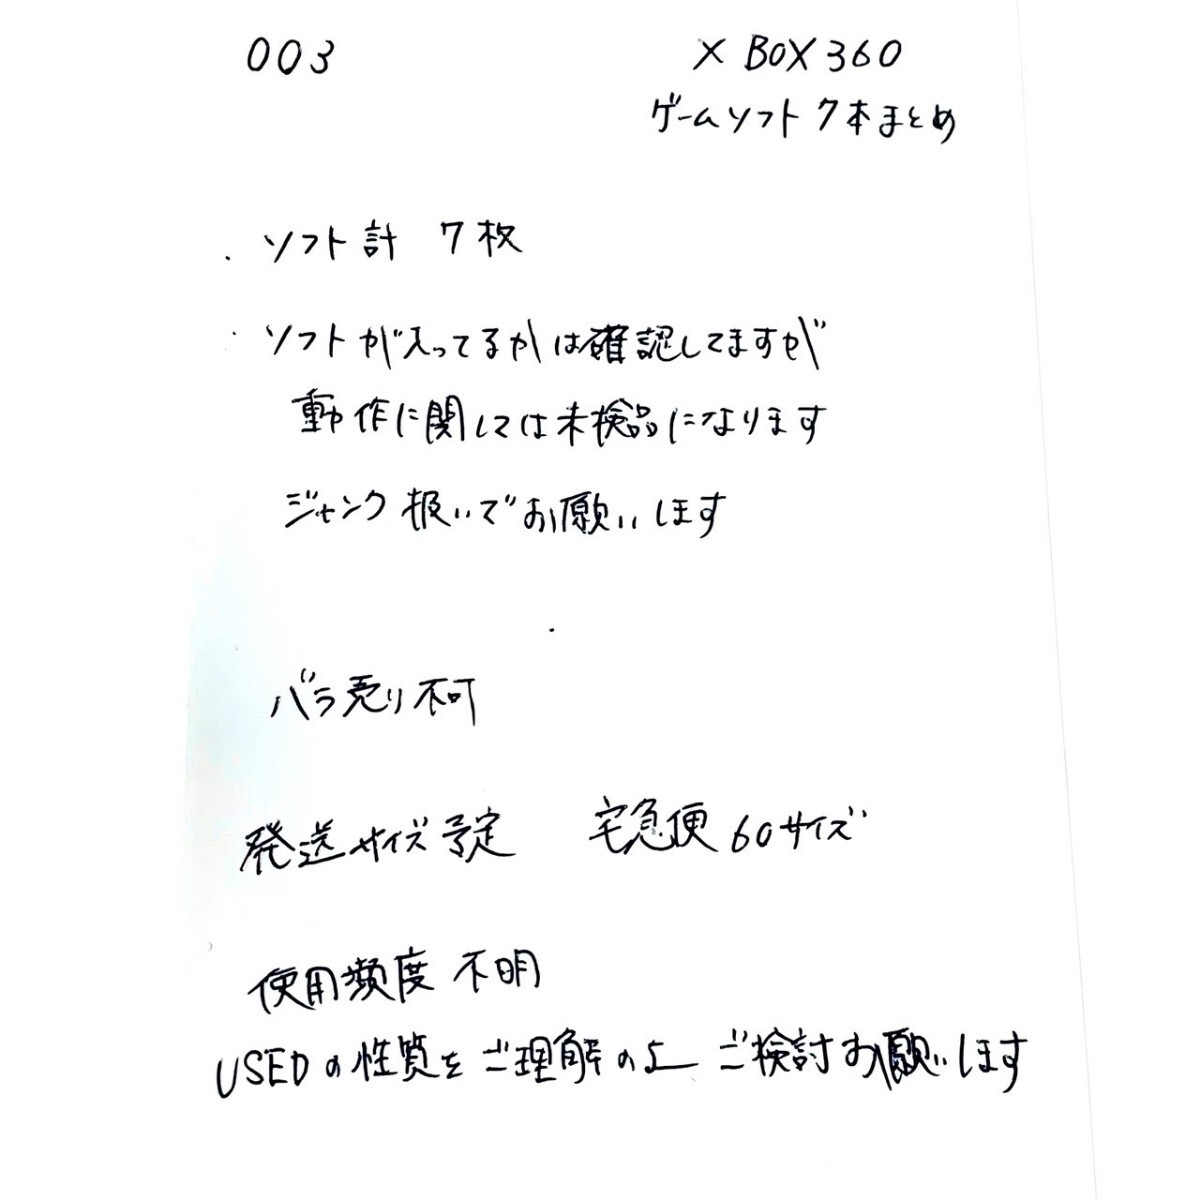 003
X BOX 360
ゲームソフト 7本まとめ
・ソフト計 7枚
・ソフトが入ってるかは確認してますが
動作に関しては未検品になります
ジャンク扱いでお願いします
バラ売り不可
発送サイズ予定 宅急便60サイズ
使用頻度 不明
USEDの性質をご理解の上 ご検討お願いします